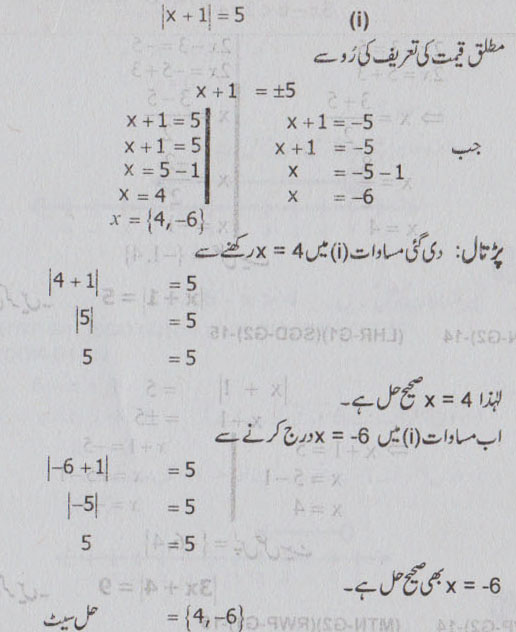 |x + 1| = 5 (i)
مطلق قیمت کی تعریف کی رُو سے
x + 1 = ±5
x + 1 = 5 x + 1 = –5
x + 1 = 5 x + 1 = –5 جب
x = 5 – 1 x = –5 – 1
x = 4 x = –6
x = {4, –6}
پڑتال: دی گئی مساوات (i) میں x = 4 رکھنے سے
|4 + 1| = 5
|5| = 5
5 = 5
لہٰذا x = 4 صحیح حل ہے۔
اب مساوات (i) میں x = -6 درج کرنے سے
|–6 + 1| = 5
|–5| = 5
5 = 5
x = -6 بھی صحیح حل ہے۔
حل سیٹ = {4, –6}